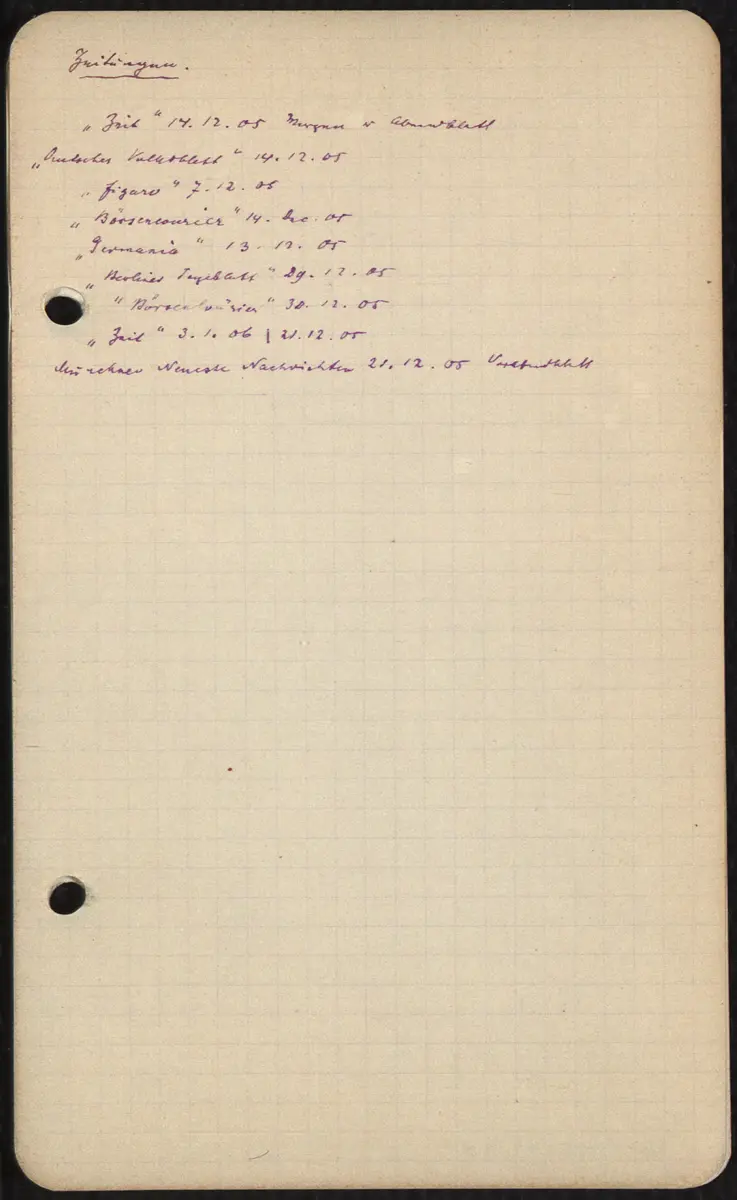 Zeitungen.
„Zeit“ 14.12.05 Morgen u Abendblatt
„Deutsches Volksblatt“ 14.12.05
„figaro“ 7.12.05
„Börsencourier“ 14. Dec. 05
„Germania“ 13.12.05
„Berliner Tageblatt“ 29.12.05
„Börsenkurier“ 30.12.05
„Zeit“ 3.1.06 | 21.12.05
Münchner Neueste Nachrichten 21.12.05